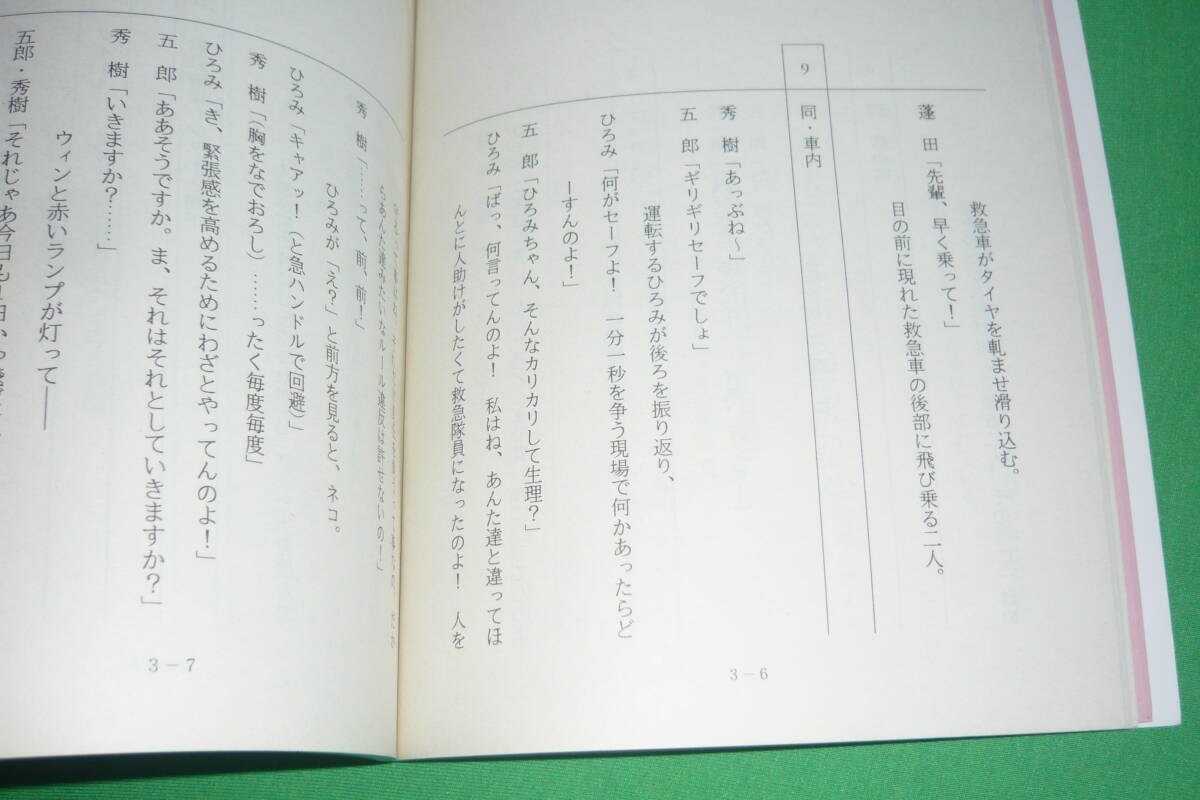 救急車がタイヤを軋ませ滑り込む。
蓬　田「先輩、早く乗って！」
目の前に現れた救急車の後部に飛び乗る二人。
9　同・車内
秀　樹「あっぶね～」
五　郎「ギリギリセーフでしょ」
運転するひろみが後ろを振り返り、
ひろみ「何がセーフよ！　一分一秒を争う現場で何かあったらど
ーすんのよ！」
五　郎「ひろみちゃん、そんなカリカリして生理？」
ひろみ「ばっ、何言ってんのよ！　私はね、あんた達と違ってほ
んとに人助けがしたくて救急隊員になったのよ！　人を
3－6
らあんた達みたいなルール違反は許せないの！」
秀　樹「……って、前、前！」
ひろみが「え？」と前方を見ると、ネコ。
ひろみ「キャアッ！（と急ハンドルで回避）」
秀　樹「（胸をなでおろし）……ったく毎度毎度」
ひろみ「き、緊張感を高めるためにわざとやってんのよ！」
五　郎「ああそうですか。ま、それはそれとしていきますか？」
秀　樹「いきますか？……」
ウィンと赤いランプが灯って――
五郎・秀樹「それじゃあ今日も一日、
3－7